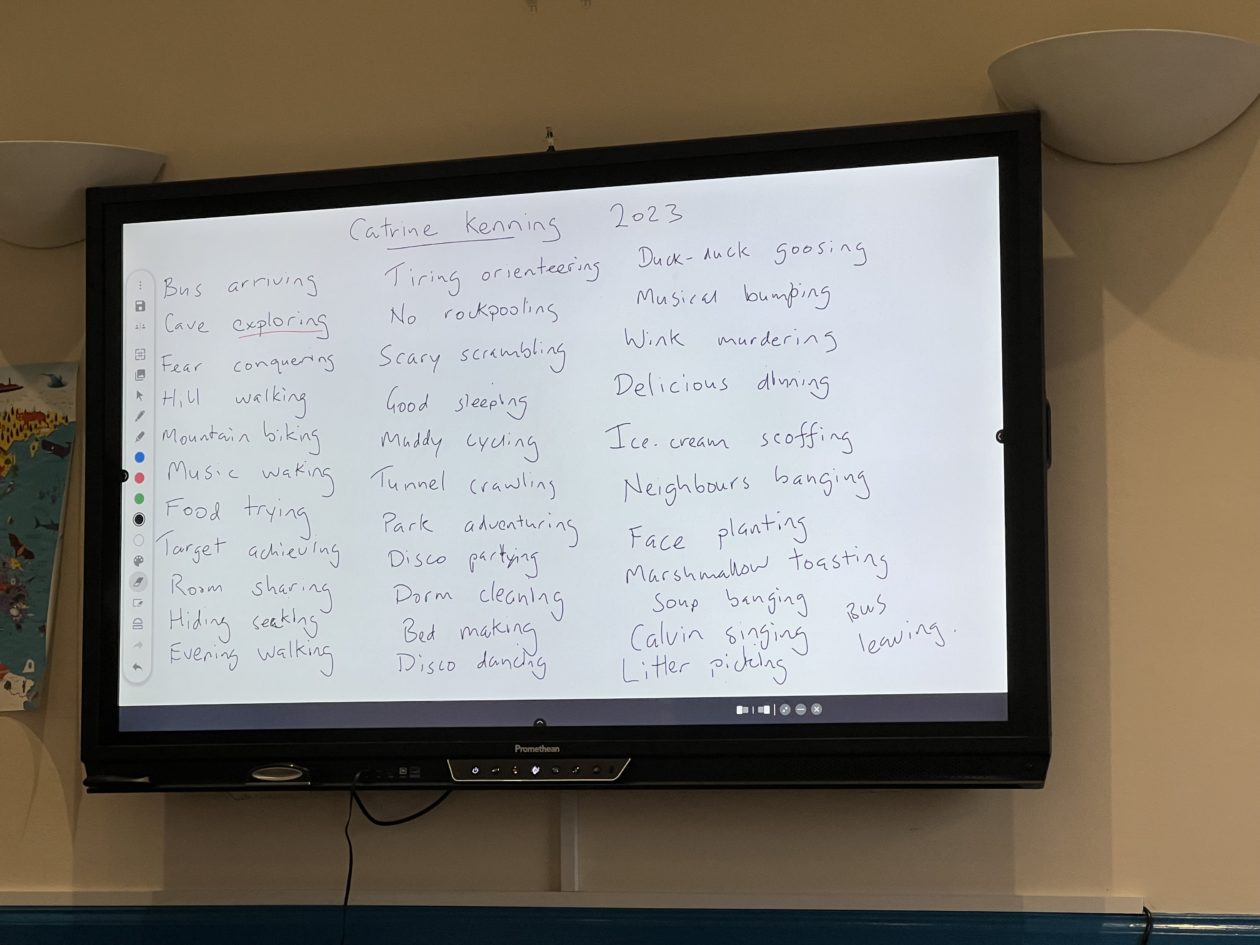 Catrine Kenning 2023
Bus arriving
Cave exploring
Fear conquering
Hill walking
Mountain biking
Music waking
Food trying
Target achieving
Room sharing
Hiding seaking
Evening walking
Tiring orienteering
No rockpooling
Scary scrambling
Good sleeping
Muddy cycling
Tunnel crawling
Park adventuring
Disco partying
Dorm cleaning
Bed making
Disco dancing
Duck-duck goosing
Musical bumping
Wink murdering
Delicious dinning
Ice-cream scoffing
Neighbours banging
Face planting
Marshmallow toasting
Soup banging
Calvin singing
Litter picking
Bus
leaving.
Promethean